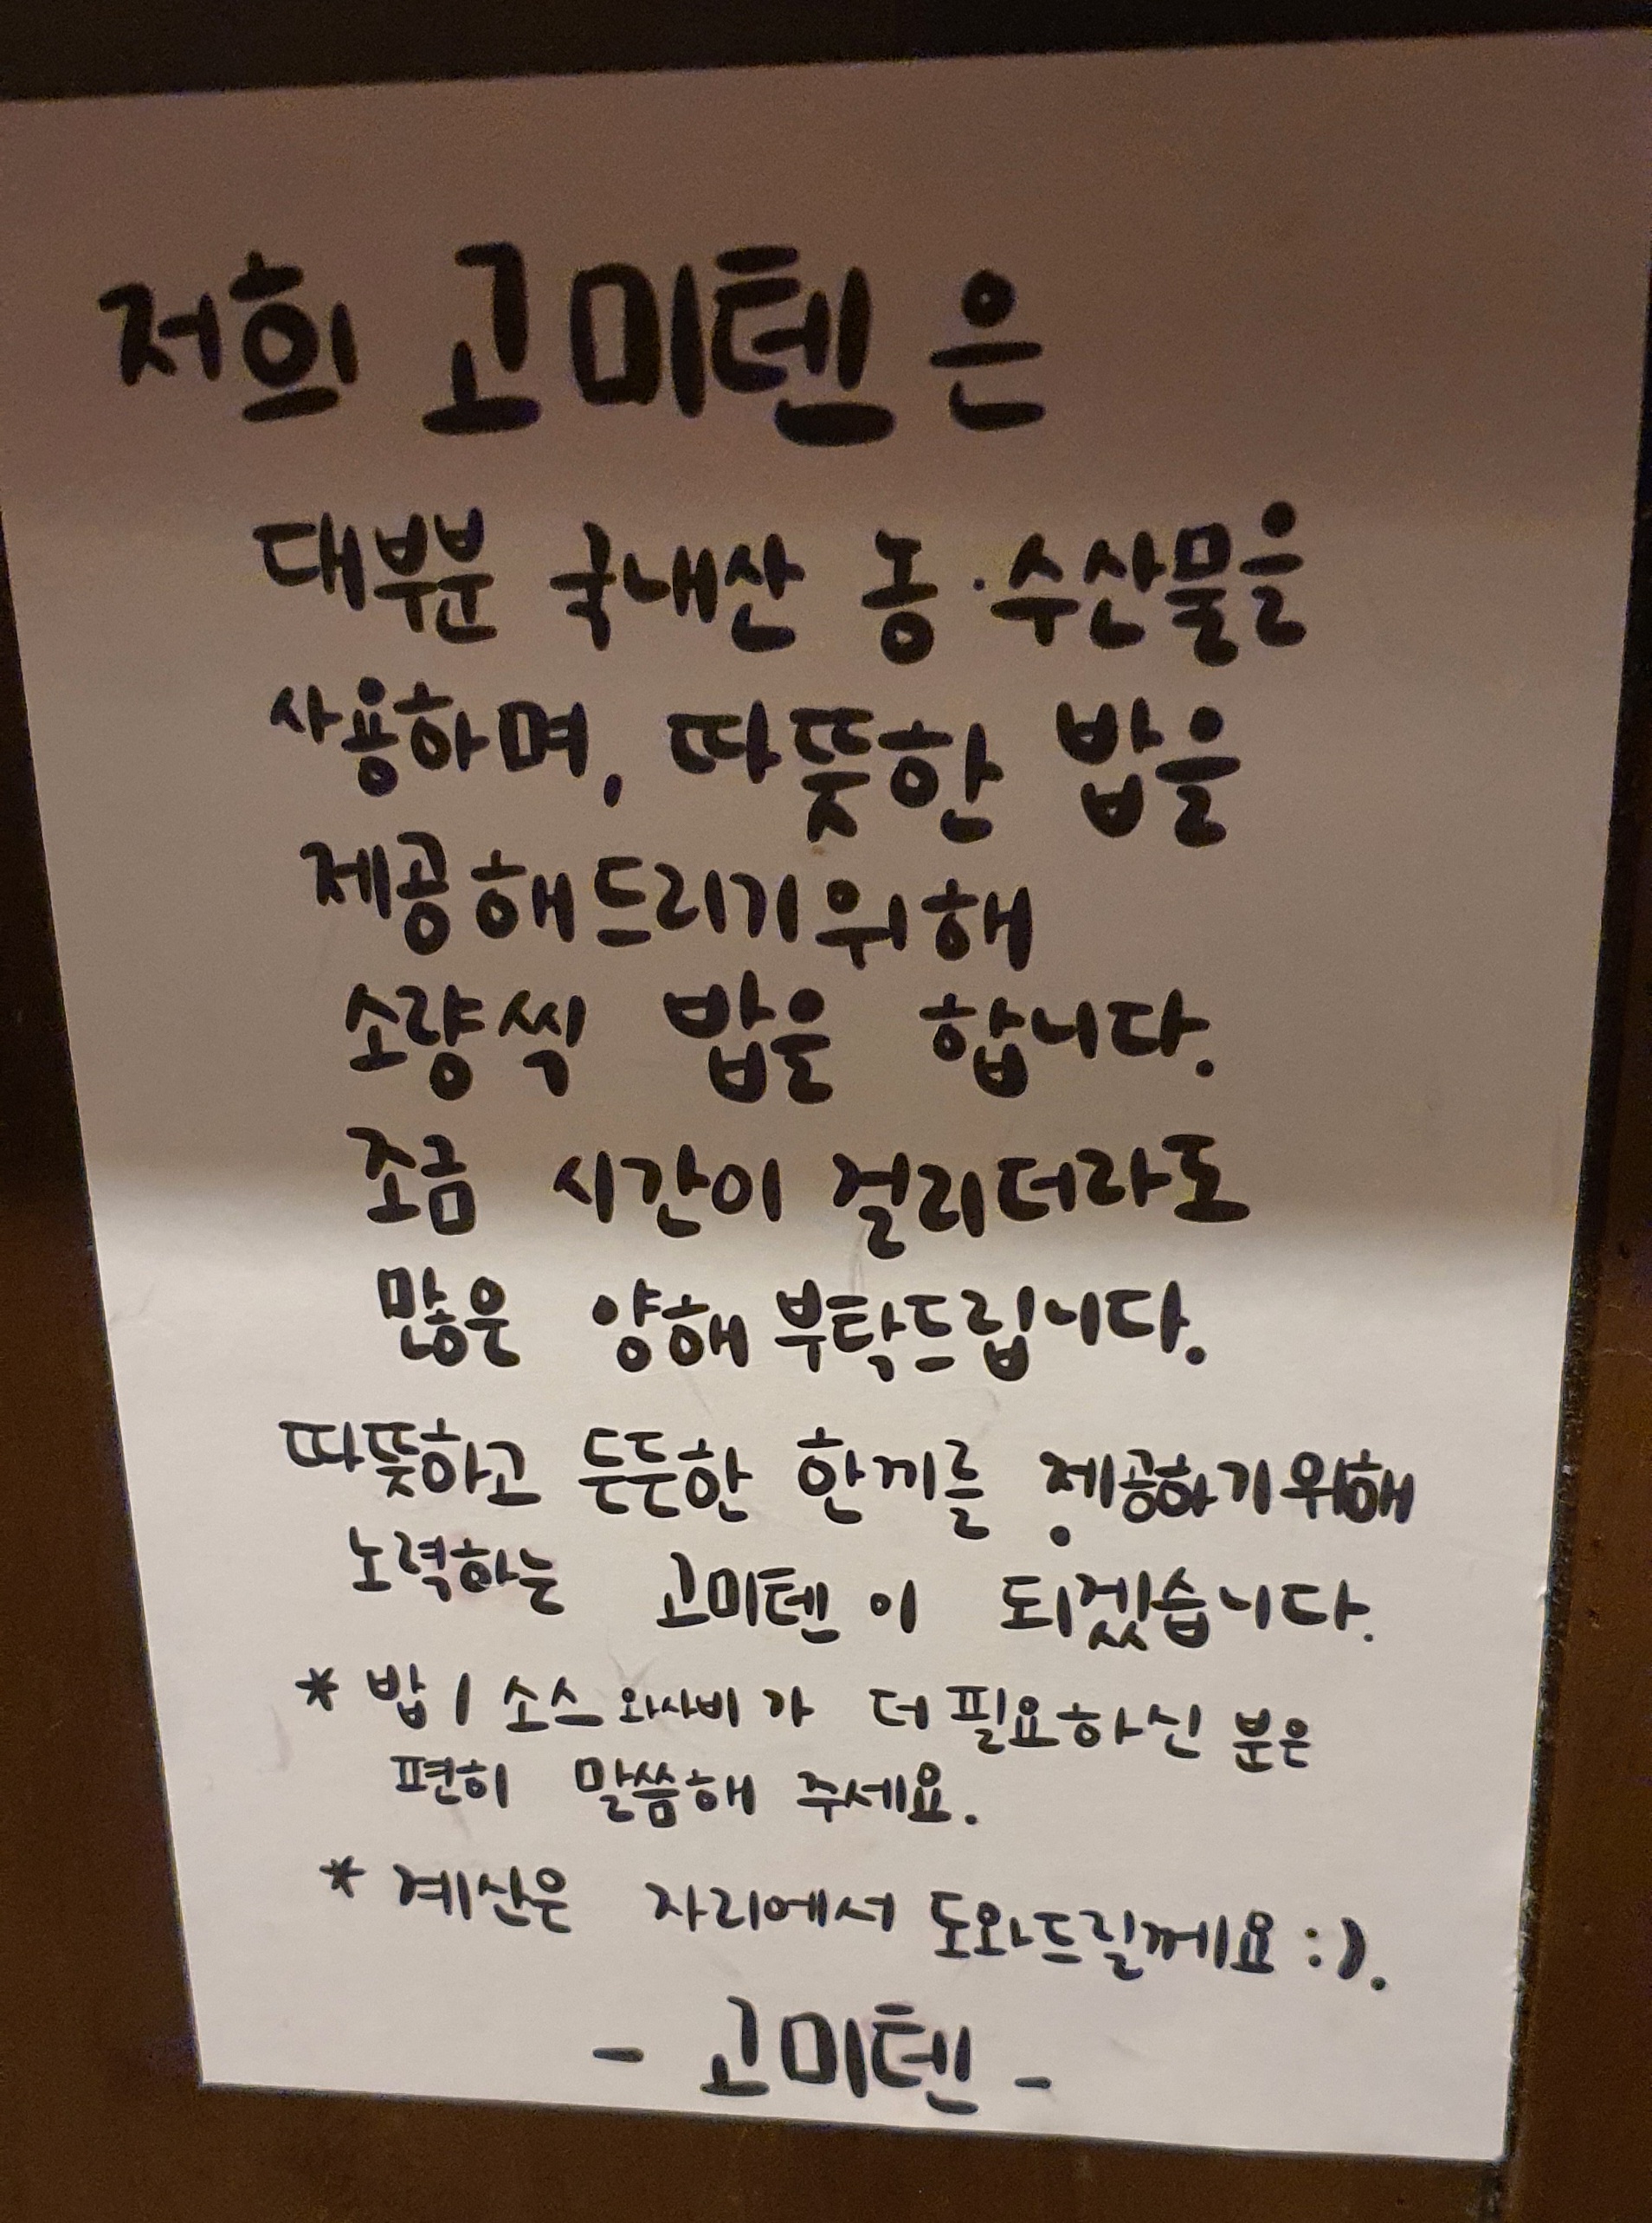 저희 고미텐은
대부분 국내산 농·수산물을
사용하며, 따뜻한 밥을
제공해드리기위해
소량씩 밥을 합니다.
조금 시간이 걸리더라도
많은 양해 부탁드립니다.
따뜻하고 든든한 한끼를 제공하기위해
노력하는 고미텐이 되겠습니다.
* 밥 / 소스 와사비가 더 필요하신 분은
편히 말씀해 주세요.
* 계산은 자리에서 도와드릴께요 :).
- 고미텐 -